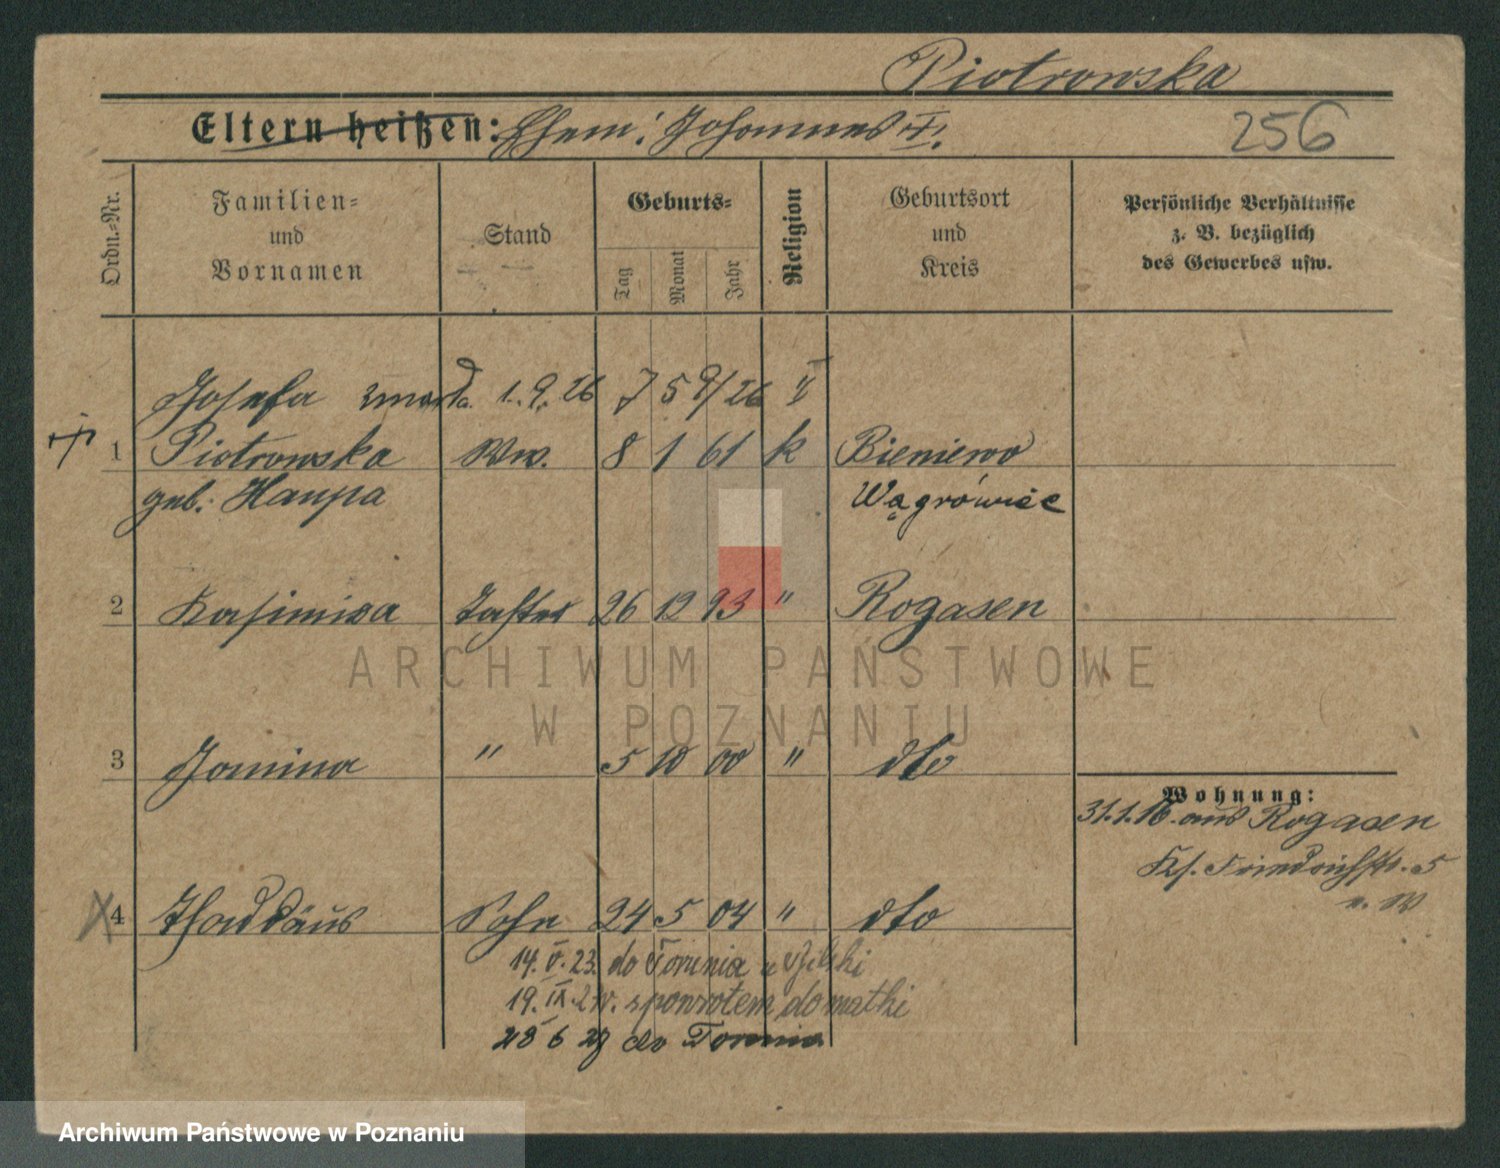 Piotrowska
Eltern heißen: Ehem. Johannes
256
Ordn.-Nr.
Familien-
und
Vornamen
Stand
Geburts-
Tag
Monat
Jahr
Religion
Geburtsort
und
Kreis
Persönliche Verhältnisse
z. B. bezüglich
des Gewerbes usw.
Josefa zmarła 1. 9. 26
1 Piotrowska Ww. 8 1 61 k Bieniewo
geb. Haupa Wągrówiec
2 Kasimira Tochter 26 12 93 " Rogasen
3 Janina " 5 10 00 " dto
Wohnung:
31.1.16. aus Rogasen
Friedrichstr. 5
4 Thaddäus Sohn 24 5 04 " dto
14. V. 23. do Torunia
19. IX. spowrotem do matki
28 6 do Torunia
ARCHIWUM PAŃSTWOWE
W POZNANIU
Archiwum Państwowe w Poznaniu